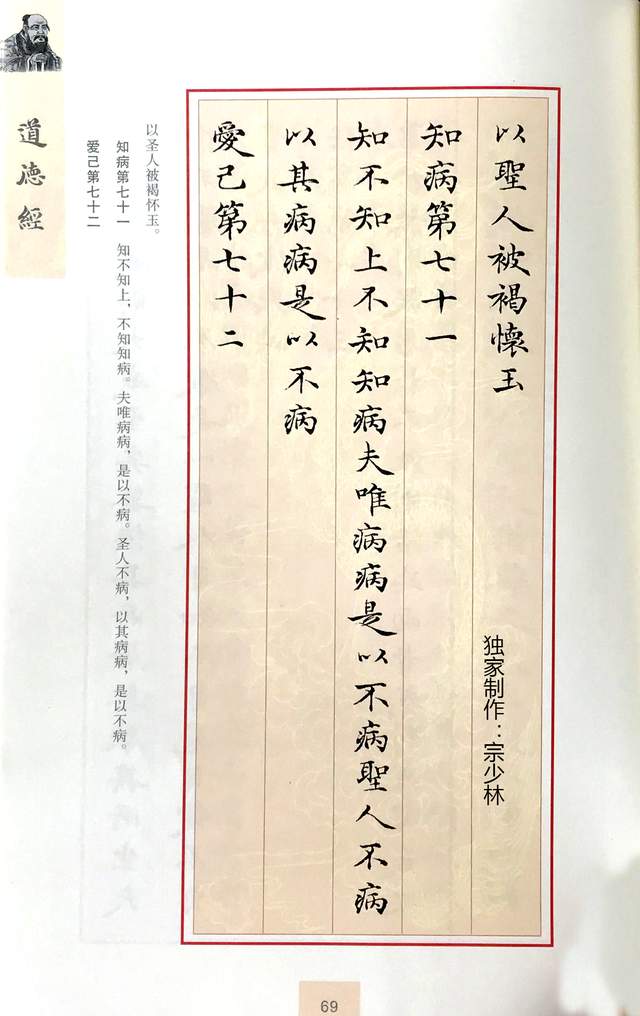 以聖人被褐懷玉
知病第七十一
知不知上不知知病夫唯病病是以不病聖人不病
以其病病是以不病
愛己第七十二
独家制作：宗少林
以圣人被褐怀玉。
知病第七十一 知不知上，不知知病。夫唯病病，是以不病。圣人不病，以其病病，是以不病。
爱己第七十二
道德經
69